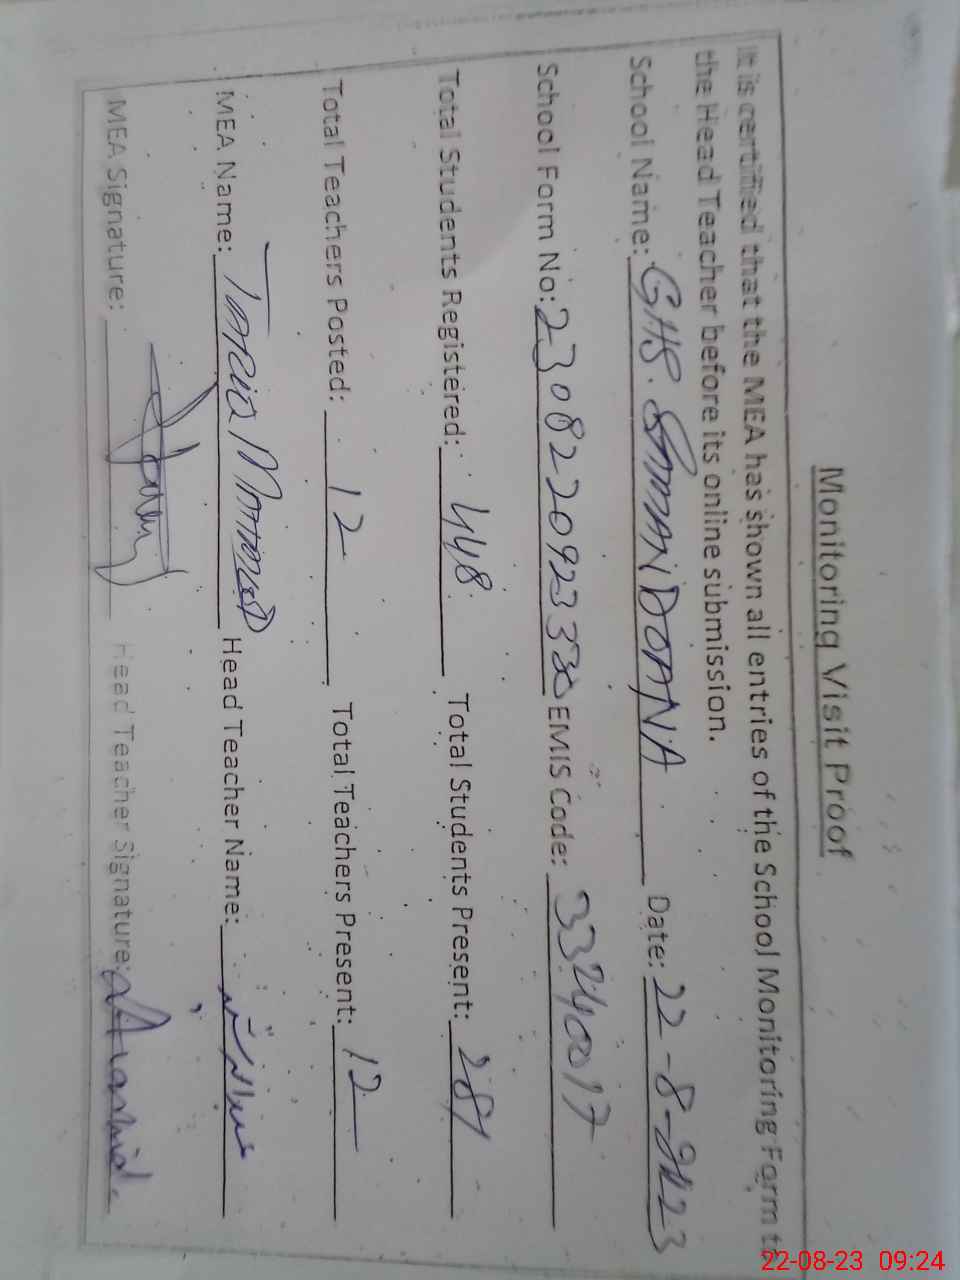 Monitoring Visit Proof
It is certified that the MEA has shown all entries of the School Monitoring Form to
the Head Teacher before its online submission.
School Name: GHS. DOANA Date: 22-8-2023
School Form No: 230822092330 EMIS Code: 33240017
Total Students Registered: 448 Total Students Present: 281
Total Teachers Posted: 12 Total Teachers Present: 12
MEA Name: TARIQ MAHMOOD Head Teacher Name:
MEA Signature: Head Teacher Signature:
22-08-23 09:24